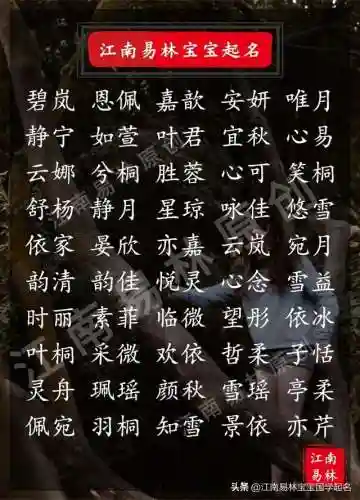 江南易林宝宝起名
碧岚 恩佩 嘉歆 安妍 唯月
静宁 如萱 叶君 宜秋 心易
云娜 兮桐 胜蓉 心可 笑桐
舒杨 静月 星琼 咏佳 悠雪
依家 晏欣 亦嘉 云岚 宛月
韵清 韵佳 悦灵 心念 雪益
时丽 素菲 临微 望彤 依冰
叶桐 采微 欢依 哲柔 子恬
灵舟 珮瑶 颜秋 雪瑶 亭柔
佩宛 羽桐 知雪 景依 亦芹
江南易林原创
江南易林原创
江南
易林
头条 @江南易林宝宝国学起名